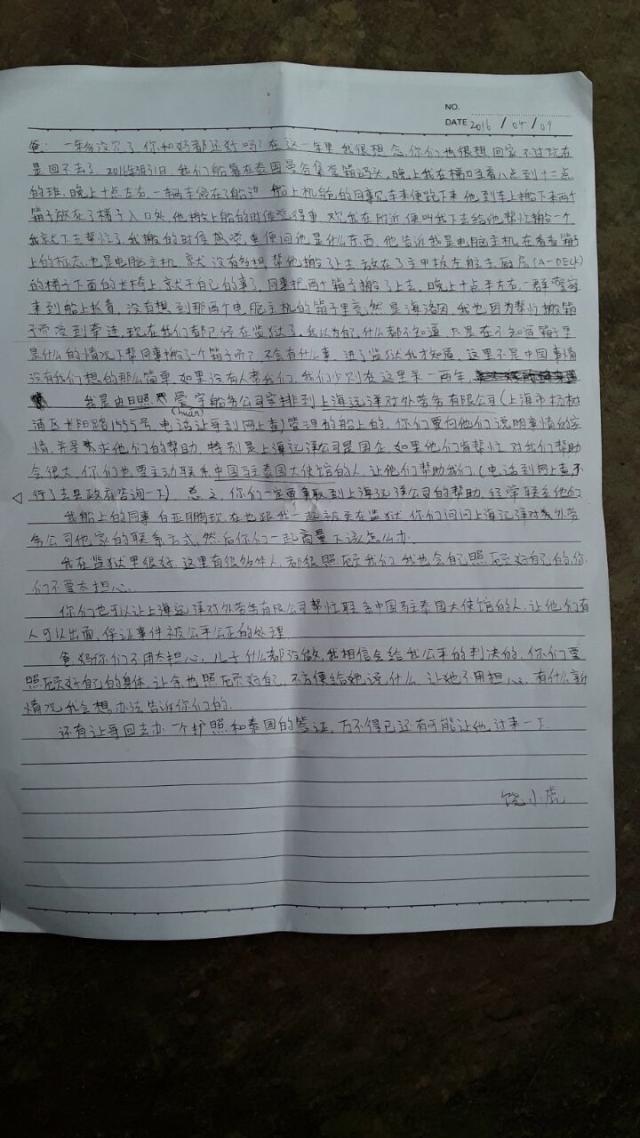 NO.
DATE 2016 / 04 / 09
爸：一年多没见了，你和妈都还好吗？在这一年里我很想念你们也很想回家，不过现在
是回不去了。2016年3月31日，我们船靠在泰国曼谷集装箱码头，晚上我在梯口值八点到十二点
的班，晚上十点左右，一辆车停在了船边，船上机舱的同事见车来便跑下来，他到车上搬下来两个
箱子放在了梯子入口处，他搬上船的时候觉得重，我在附近，便叫我下去给他帮忙搬一个
我就下去帮忙了，我搬的时候感觉重便问他是什么东西，他告诉我是电脑主机，在看看箱子
上的标志，也是电脑主机，就没有多想，帮他搬了上去，放在了主甲板左舷去 (A-DECK)
的梯子下面的，就干自己的事了，同事把两个箱子搬了上去，晚上十点半左右，一群警察
来到船上检查，没有想到那两个电脑主机的箱子里竟然是海洛因，我也因为帮忙搬箱
子而受到牵连，现在我们都已经在监狱了，我认为自己什么都不知道，只是在不知道箱子里
是什么的情况下帮同事搬了一个箱子而已，不会有什么事，进了监狱我才知道，这里不是中国，事情
没有我们想的那么简单，如果没有人帮我们，我们少则在这里呆一两年，
我是由日照 寰宇船务公司安排到上海远洋对外劳务有限公司（上海市杨树
(huán)
浦区长阳路1555号，电话让哥到网上查）管理的船上的，你们要向他们说明事情的实
情，并寻求他们的帮助，特别是上海远洋公司是国企，如果他们肯帮忙，对我们帮助
会很大，你们也要主动联系中国驻泰国大使馆的人，让他们帮助我们（电话到网上查，不
行了去县政府咨询一下），总之，你们一定要争取到上海远洋公司的帮助，经常联系他们
我船上的同事白亚鹏现在也跟我一起被关在监狱，你们问问上海远洋对外劳
务公司他家的联系方式，然后你们一起商量下该怎么办。
我在监狱里很好，这里有很多华人，都很照顾我们，我也会自己照顾好自己的，你
们不要太担心。
你们也可以让上海远洋对外劳务有限公司帮忙联系中国驻泰国大使馆的人，让他们有
人可以出面，保证事件被公平公正的处理
爸妈你们不用太担心，儿子什么都没做，我相信会给我公平的判决的，你们要
照顾好自己的身体，让 也照顾好自己，不方便给她说什么，让她不用担心，有什么新
情况我会想办法告诉你们的。
还有让哥回去办一个护照和泰国的签证，万不得已还有可能让他过来一下
饶小虎